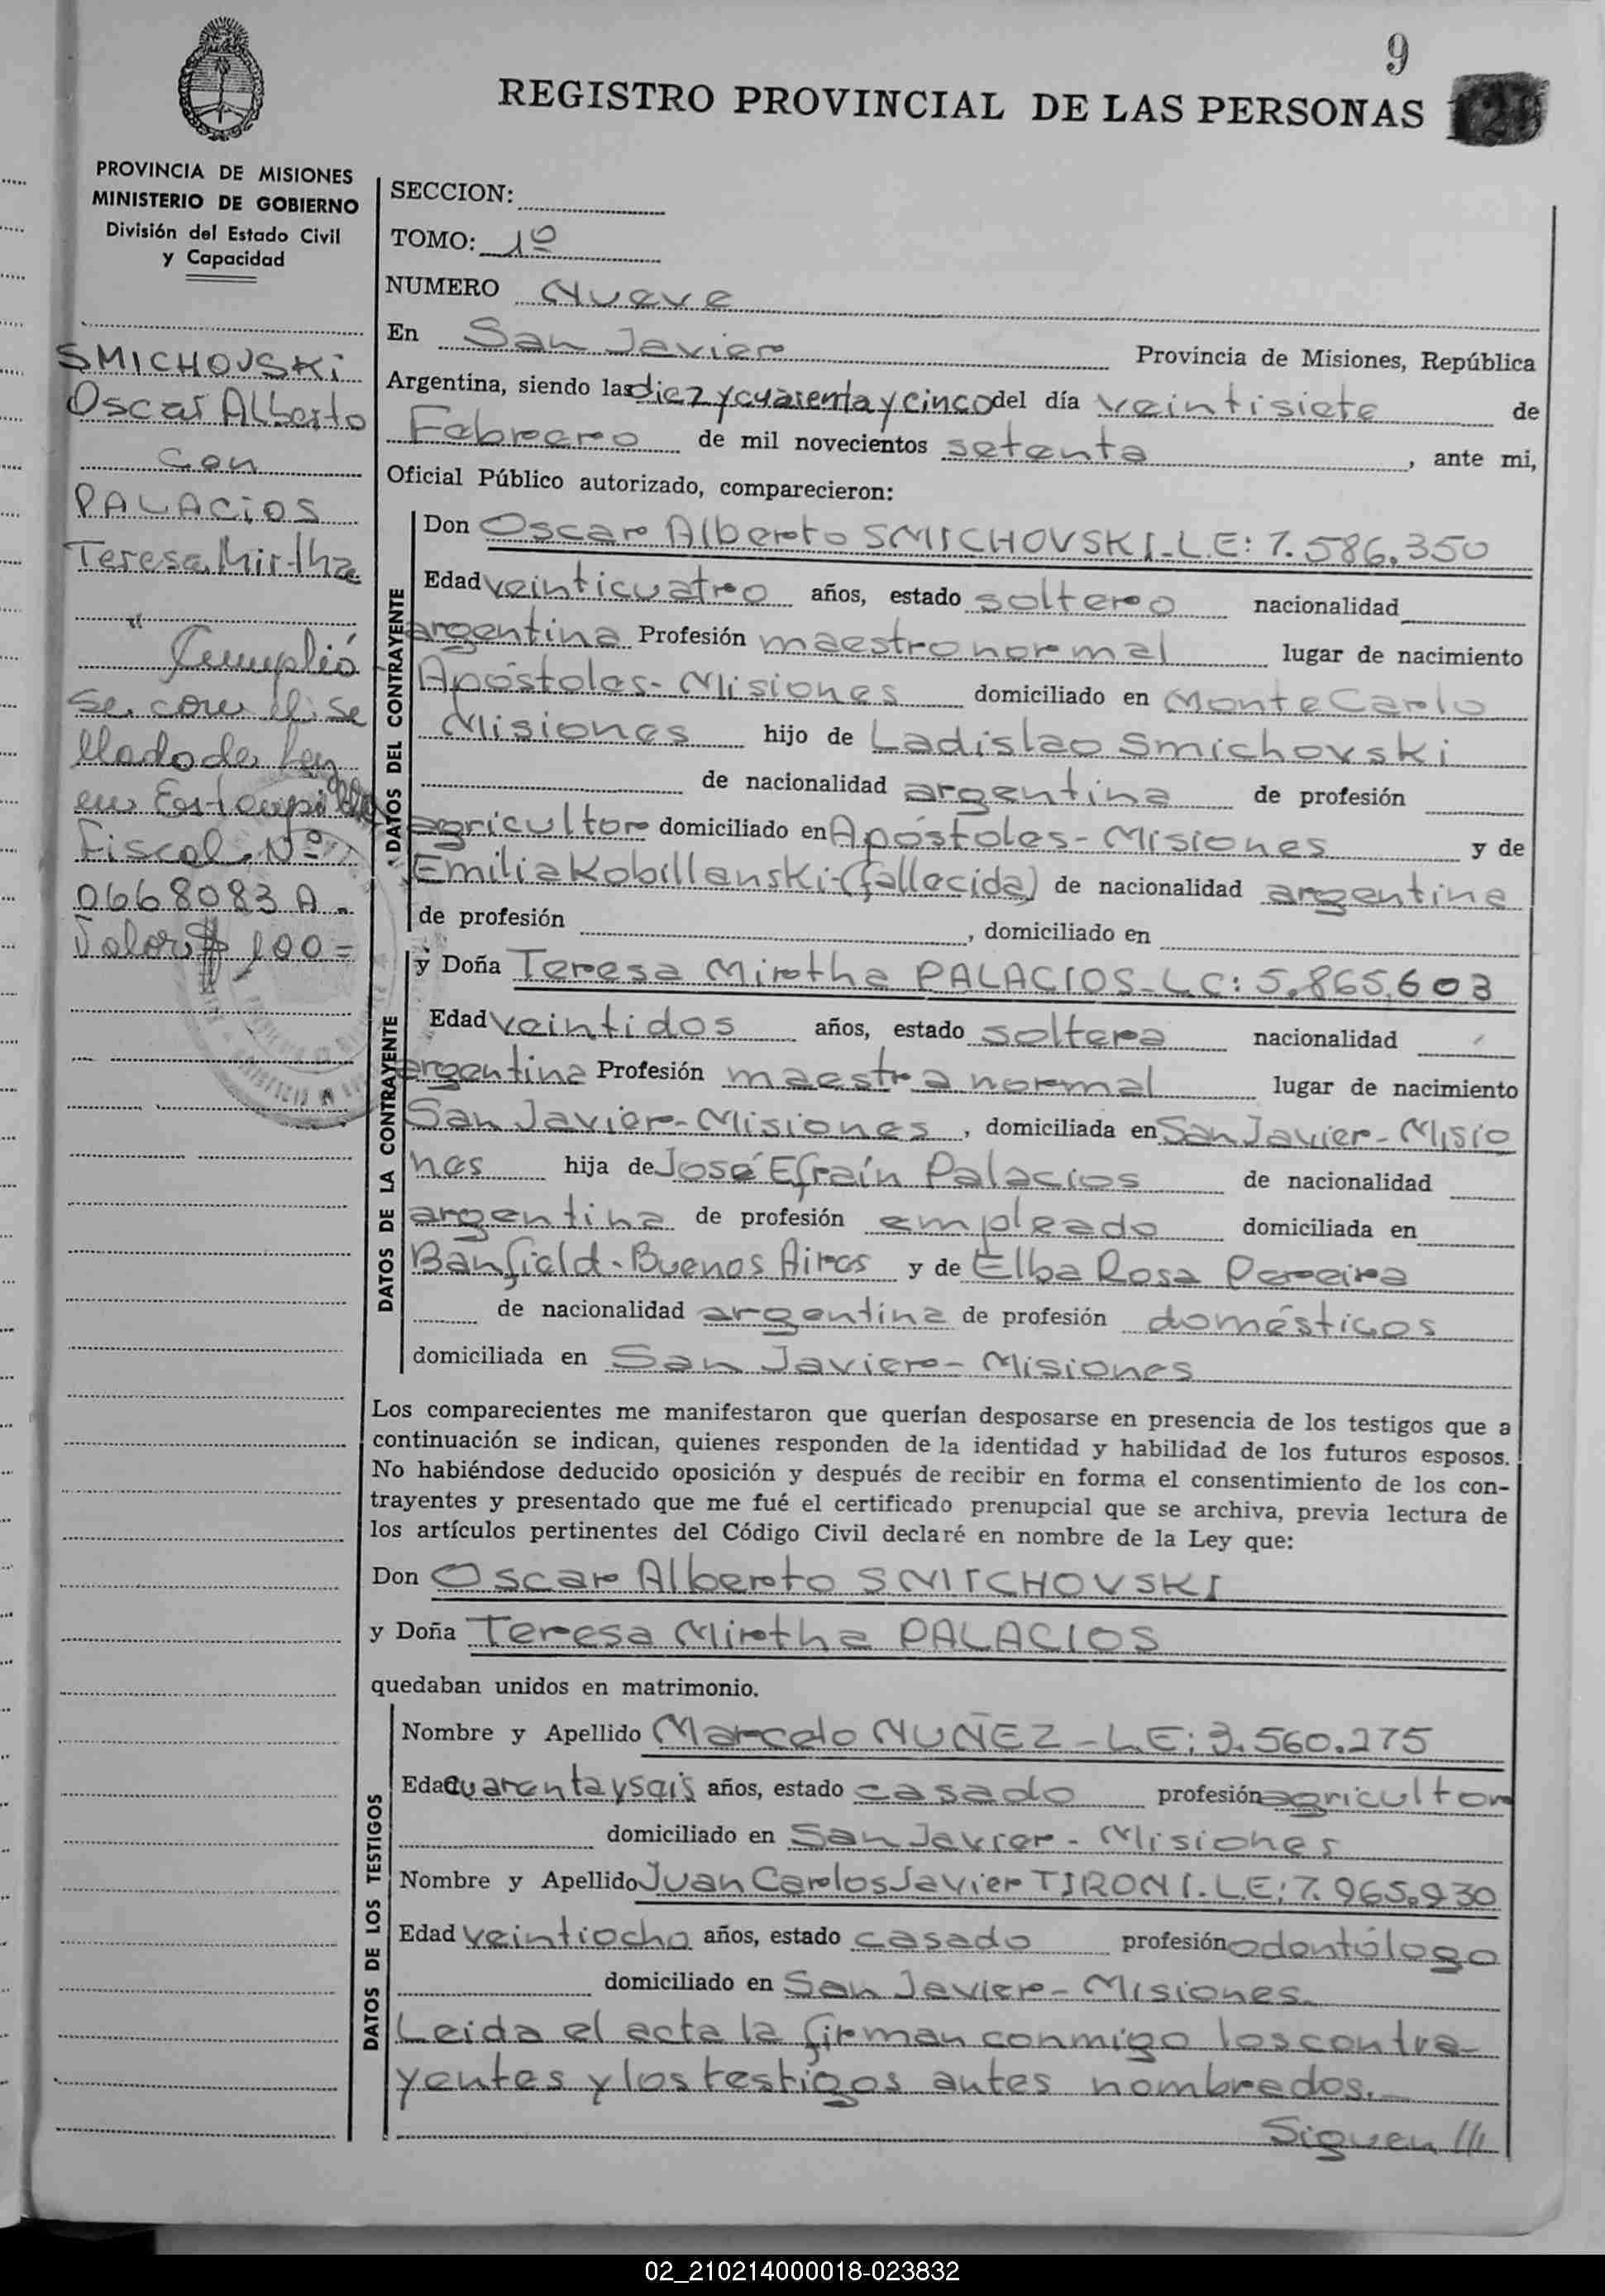 9
REGISTRO PROVINCIAL DE LAS PERSONAS
PROVINCIA DE MISIONES
MINISTERIO DE GOBIERNO
División del Estado Civil
y Capacidad
SMICHOVSKI
Oscar Alberto
con
PALACIOS
Teresa Mirtha
Cumplió
se con el se
llado de Ley
en Estampilla
Fiscal Nº
0668083 A.
Valor $ 100=
SECCION:
TOMO: 1º
NUMERO Nueve
En San Javier Provincia de Misiones, República
Argentina, siendo las diez y cuarenta y cinco del día veintisiete de
Febrero de mil novecientos setenta, ante mi,
Oficial Público autorizado, comparecieron:
DATOS DEL CONTRAYENTE
Don Oscar Alberto SMICHOVSKI. L.E: 7.586.350
Edad veinticuatro años, estado soltero nacionalidad
argentina Profesión maestro normal lugar de nacimiento
Apóstoles - Misiones domiciliado en Monte Carlo
Misiones hijo de Ladislao Smichovski
de nacionalidad argentina de profesión
agricultor domiciliado en Apóstoles - Misiones y de
Emilia Kobillanski - (fallecida) de nacionalidad argentina
de profesión , domiciliado en
DATOS DE LA CONTRAYENTE
y Doña Teresa Mirtha PALACIOS - L.C: 5.865.603
Edad veintidos años, estado soltera nacionalidad
argentina Profesión maestra normal lugar de nacimiento
San Javier - Misiones, domiciliada en San Javier - Misio
nes hija de José Efraín Palacios de nacionalidad
argentina de profesión empleado domiciliada en
Banfield - Buenos Aires y de Elba Rosa Pereira
de nacionalidad argentina de profesión domésticos
domiciliada en San Javier - Misiones
Los comparecientes me manifestaron que querían desposarse en presencia de los testigos que a
continuación se indican, quienes responden de la identidad y habilidad de los futuros esposos.
No habiéndose deducido oposición y después de recibir en forma el consentimiento de los con-
trayentes y presentado que me fué el certificado prenupcial que se archiva, previa lectura de
los artículos pertinentes del Código Civil declaré en nombre de la Ley que:
Don Oscar Alberto SMICHOVSKI
y Doña Teresa Mirtha PALACIOS
quedaban unidos en matrimonio.
DATOS DE LOS TESTIGOS
Nombre y Apellido Marcelo NUÑEZ - L.E: 3.560.275
Edad cuarenta y seis años, estado casado profesión agricultor
domiciliado en San Javier - Misiones
Nombre y Apellido Juan Carlos Javier TIRONI. L.E: 7.965.930
Edad veintiocho años, estado casado profesión odontólogo
domiciliado en San Javier - Misiones.
Leida el acta la firman conmigo los contra-
yentes y los testigos antes nombrados.
Siguen ///
02_210214000018-023832